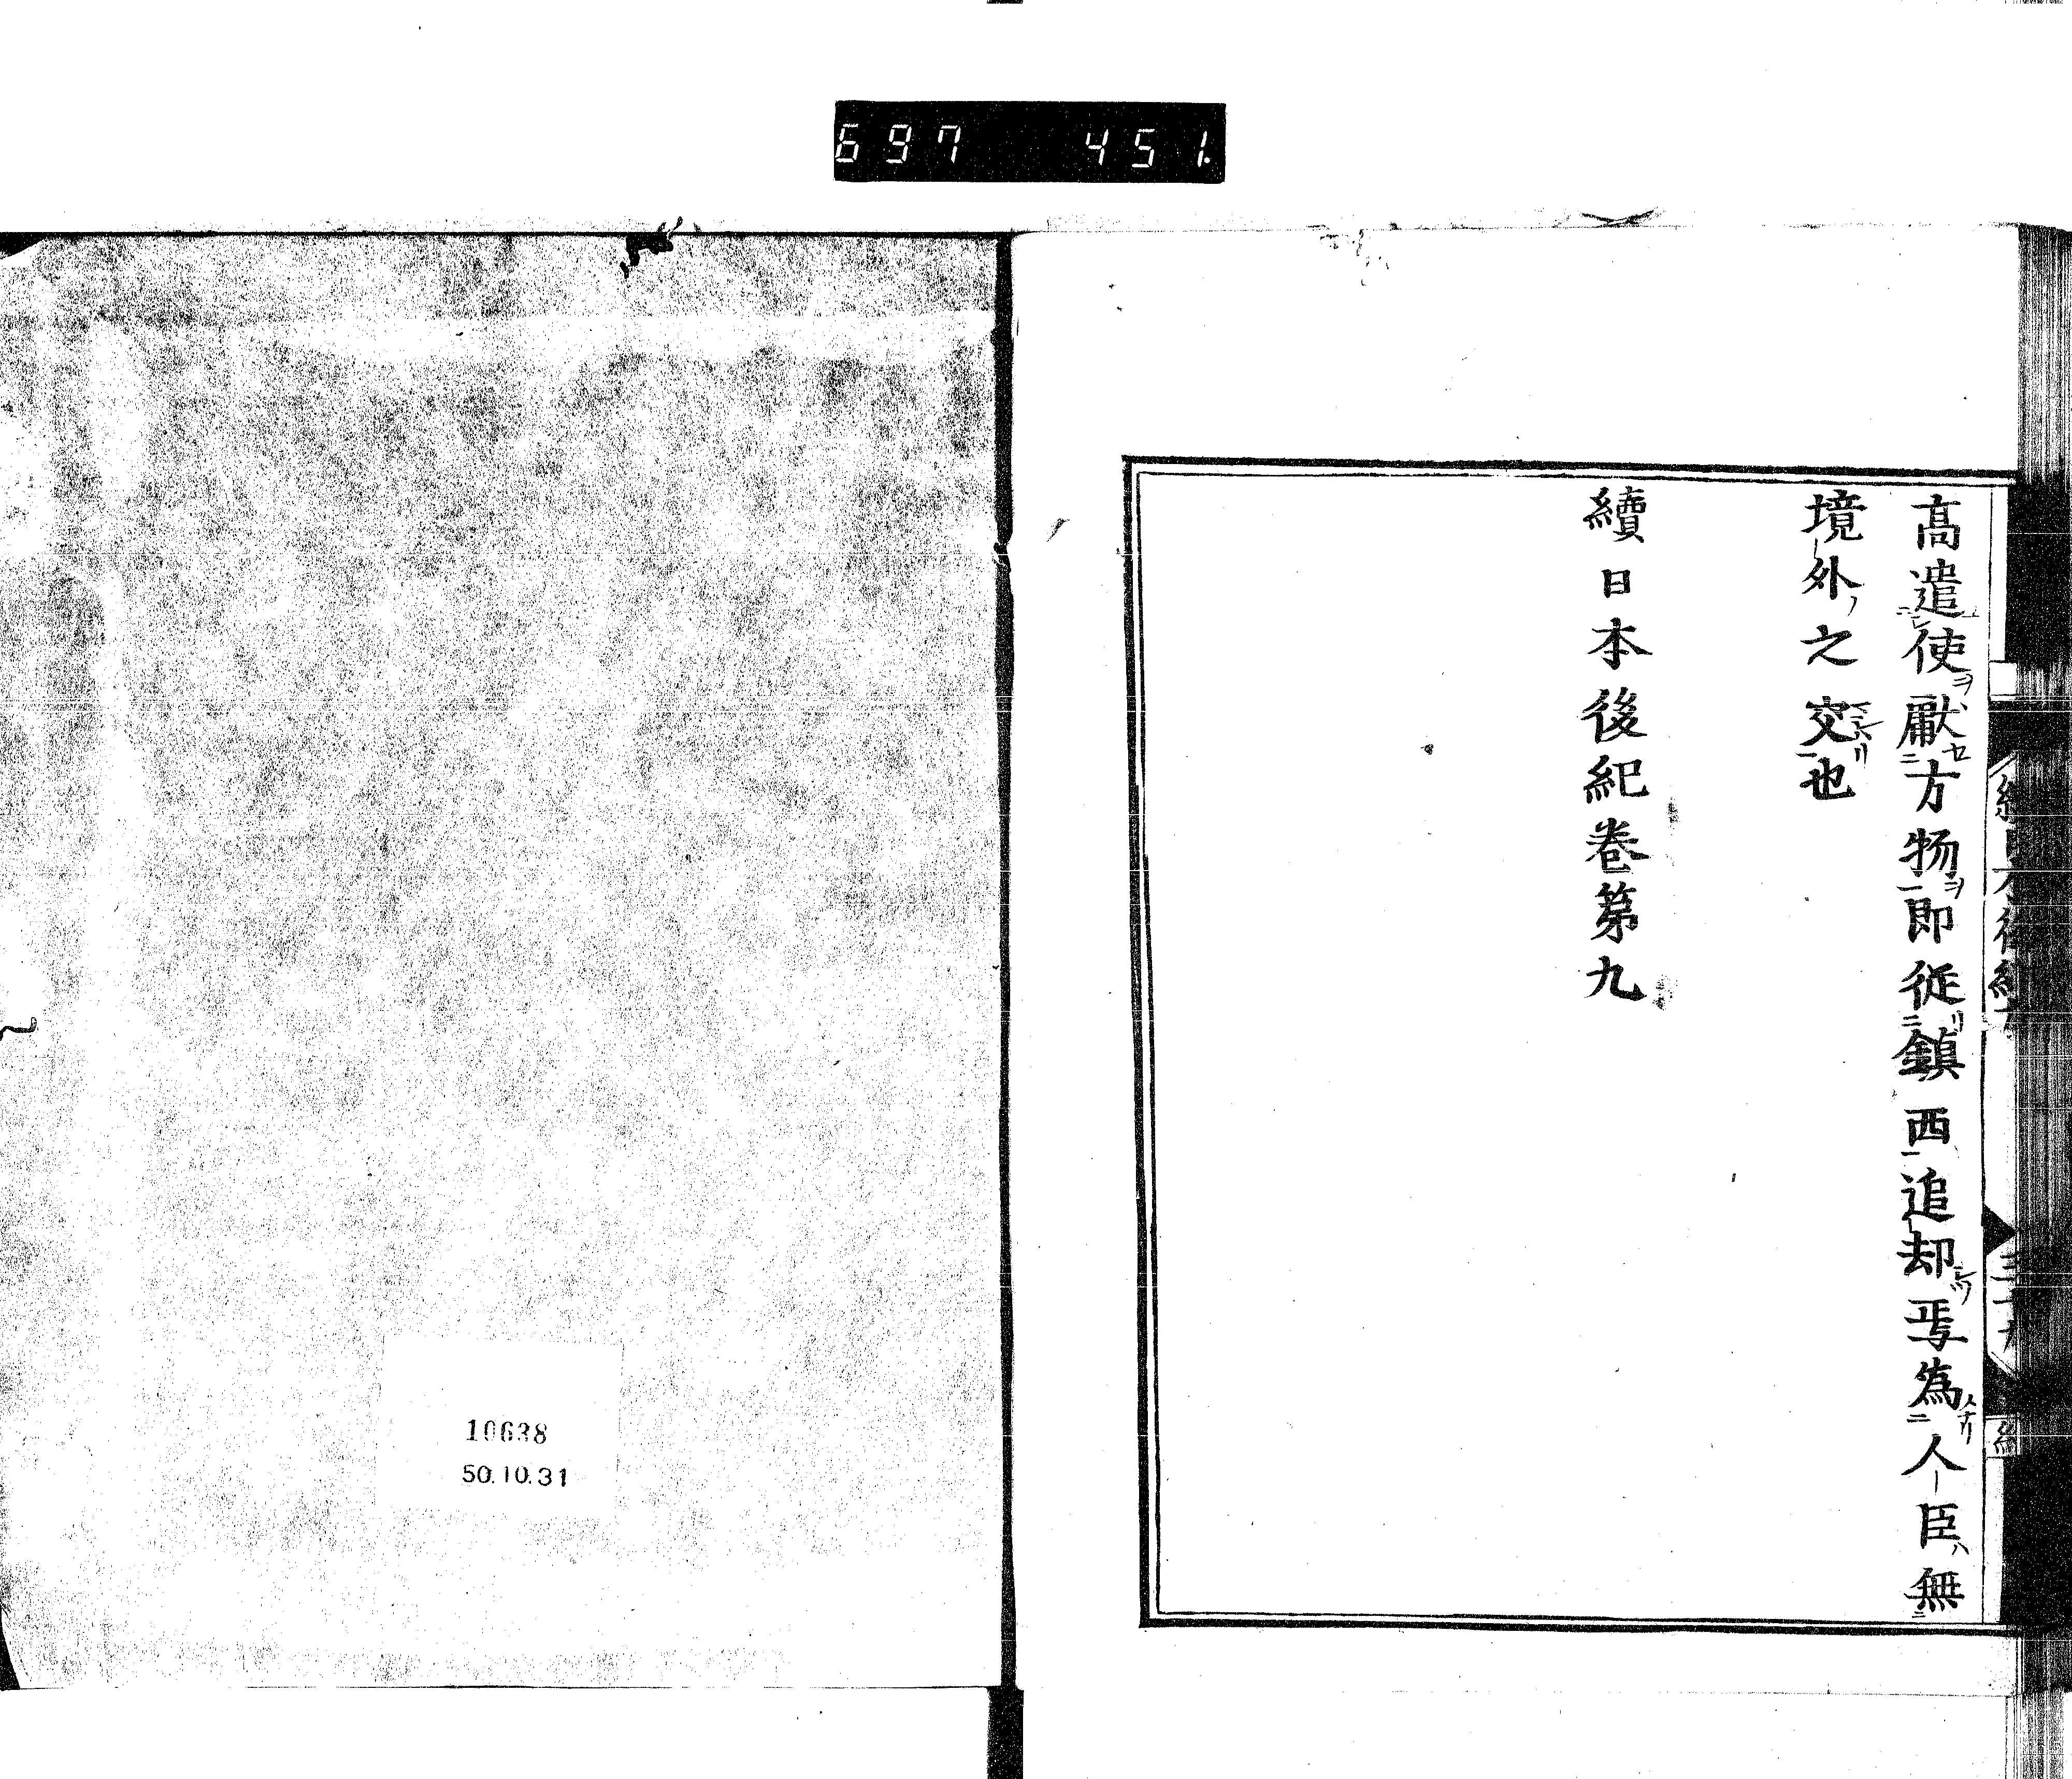 697 451.
高遣使獻方物即従鎮西追却焉為人臣無
境外之交也
續日本後紀卷第九
10638
50.10.31